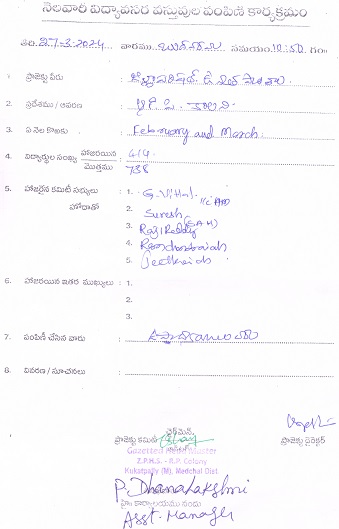 నెలవారీ విద్యావసర వస్తువుల పంపిణీ కార్యక్రమం
తేది. 27-3-2024 వారము బుధవారం సమయం: 10:50 గం॥
1. ప్రాజెక్టు పేరు :
2. ప్రదేశము / ఆవరణ : కాలని
3. ఏ నెల కొఱకు : February and March.
4. విద్యార్థుల సంఖ్య హాజరయిన : 614
మొత్తము 738
5. హాజరైన కమిటీ సభ్యులు : 1. G. Vithal
హోదాతో 2. Suresh (S.A.H)
3. Raji Reddy
4. Ramchandraiah
5.
6. హాజరయిన ఇతర ముఖ్యులు : 1.
2.
3.
7. పంపిణీ చేసిన వారు :
8. వివరణ / సూచనలు :
ప్రాజెక్టు కమిటీ ఛైర్మెన్
ప్రాజెక్టు డైరెక్టర్
Gazetted Head Master
Z.P.H.S. - R.P. Colony
Kukatpally (M), Medchal Dist
P. Dhanalakshmi
హెడ్ కార్యాలయము నందు
Asst. Manager